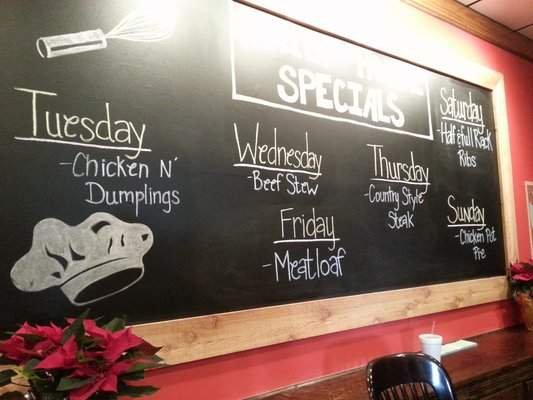 SPECIALS
Tuesday
-Chicken N'
Dumplings
Wednesday
-Beef Stew
Thursday
-Country Style
Steak
Friday
-Meatloaf
Saturday
-Half & full Rack
Ribs
Sunday
-Chicken Pot
Pie